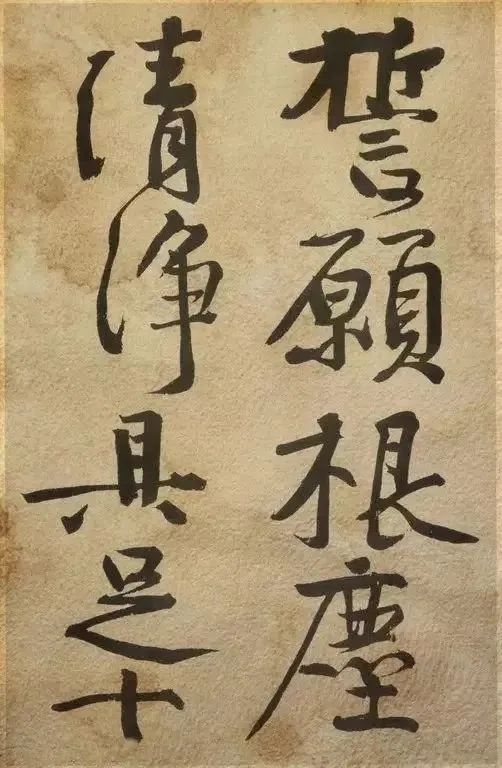 誓願根塵
清浄具足十